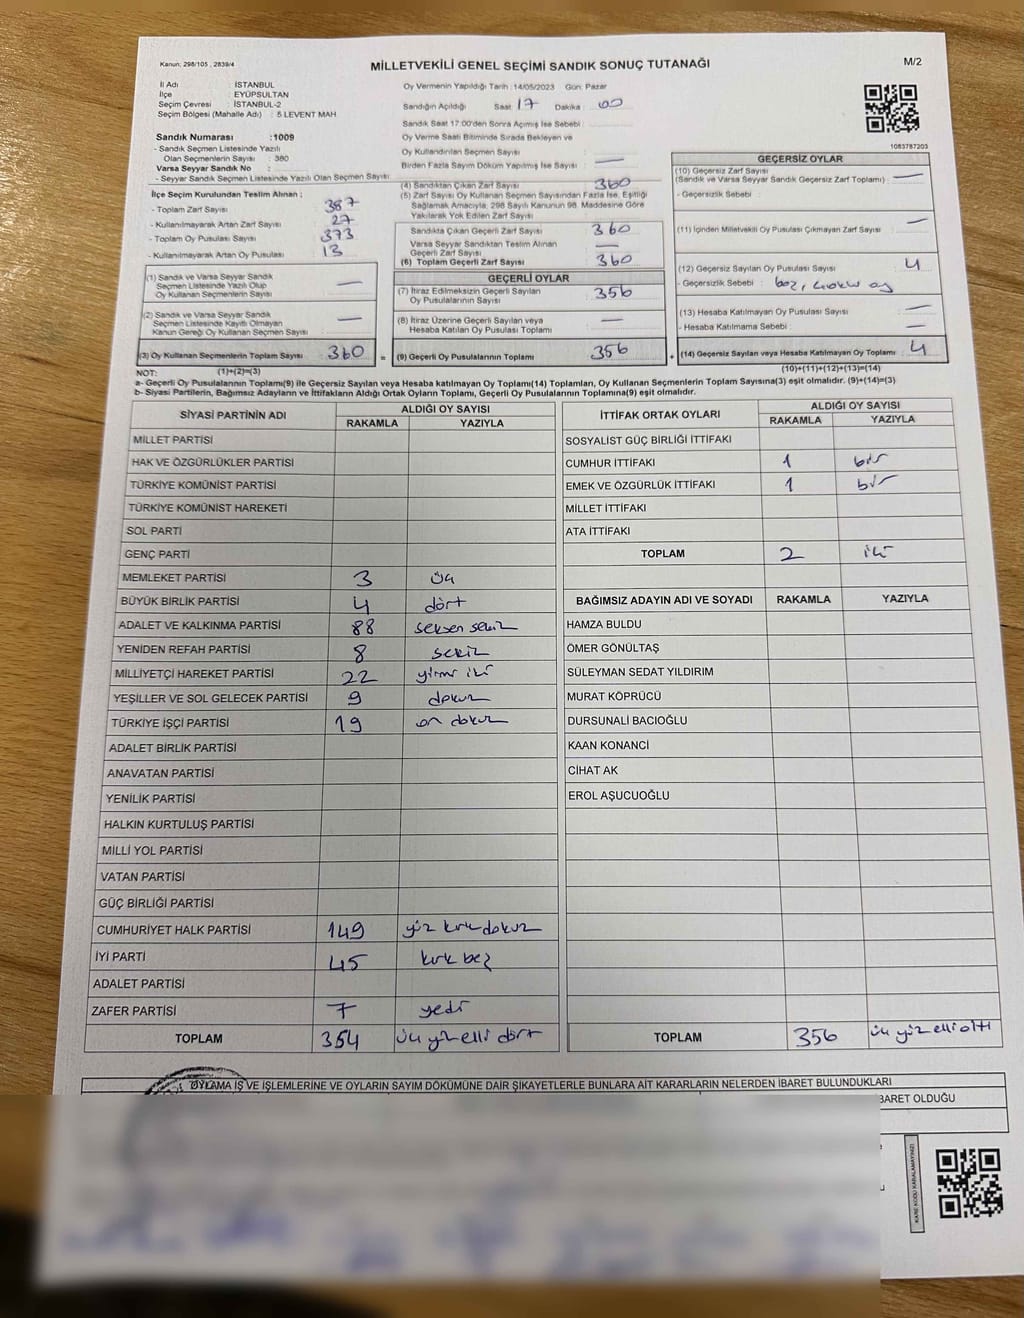 Kanun: 298/105 , 2839/4
MİLLETVEKİLİ GENEL SEÇİMİ SANDIK SONUÇ TUTANAĞI
M/2
İl Adı : İSTANBUL
İlçe : EYÜPSULTAN
Seçim Çevresi : İSTANBUL-2
Seçim Bölgesi (Mahalle Adı) : 5 LEVENT MAH
Sandık Numarası :1009
- Sandık Seçmen Listesinde Yazılı
Olan Seçmenlerin Sayısı : 380
Varsa Seyyar Sandık No :
- Seyyar Sandık Seçmen Listesinde Yazılı Olan Seçmen Sayısı
İlçe Seçim Kurulundan Teslim Alınan ;
- Toplam Zarf Sayısı 387
- Kullanılmayarak Artan Zarf Sayısı 27
- Toplam Oy Pusulası Sayısı 373
- Kullanılmayarak Artan Oy Pusulası 13
(1) Sandık ve Varsa Seyyar Sandık
Seçmen Listesinde Yazılı Olup
Oy Kullanan Seçmenlerin Sayısı —
(2) Sandık ve Varsa Seyyar Sandık
Seçmen Listesinde Kayıtlı Olmayan
Kanun Gereği Oy Kullanan Seçmen Sayısı —
(3) Oy Kullanan Seçmenlerin Toplam Sayısı 360 =
Oy Vermenin Yapıldığı Tarih : 14/05/2023 Gün: Pazar
Sandığın Açıldığı Saat 17 Dakika : 00
Sandık Saat 17:00'den Sonra Açımış İse Sebebi :
Oy Verme Saati Bitiminde Sırada Bekleyen ve
Oy Kullandırılan Seçmen Sayısı
Birden Fazla Sayım Döküm Yapılmış İse Sayısı : —
(4) Sandıktan Çıkan Zarf Sayısı 360
(5) Zarf Sayısı Oy Kullanan Seçmen Sayısından Fazla İse, Eşitliği
Sağlamak Amacıyla; 298 Sayılı Kanunun 98. Maddesine Göre
Yakılarak Yok Edilen Zarf Sayısı
Sandıkta Çıkan Geçerli Zarf Sayısı 360
Varsa Seyyar Sandıktan Teslim Alınan
Geçerli Zarf Sayısı —
(6) Toplam Geçerli Zarf Sayısı 360
GEÇERLİ OYLAR
(7) İtiraz Edilmeksizin Geçerli Sayılan
Oy Pusulalarının Sayısı 356
(8) İtiraz Üzerine Geçerli Sayılan veya
Hesaba Katılan Oy Pusulası Toplamı —
(9) Geçerli Oy Pusulalarının Toplamı 356 +
1083787203
GEÇERSİZ OYLAR
(10) Geçersiz Zarf Sayısı
(Sandık ve Varsa Seyyar Sandık Geçersiz Zarf Toplamı) : —
- Geçersizlik Sebebi :
(11) İçinden Milletvekili Oy Pusulası Çıkmayan Zarf Sayısı —
(12) Geçersiz Sayılan Oy Pusulası Sayısı 4
- Geçersizlik Sebebi : boş,
(13) Hesaba Katılmayan Oy Pusulası Sayısı —
- Hesaba Katılmama Sebebi : —
(14) Geçersiz Sayılan veya Hesaba Katılmayan Oy Toplamı 4
NOT: (1)+(2)=(3) (10)+(11)+(12)+(13)=(14)
a- Geçerli Oy Pusulalarının Toplamı(9) ile Geçersiz Sayılan veya Hesaba katılmayan Oy Toplamı(14) Toplamları, Oy Kullanan Seçmenlerin Toplam Sayısına(3) eşit olmalıdır. (9)+(14)=(3)
b- Siyasi Partilerin, Bağımsız Adayların ve İttifakların Aldığı Ortak Oyların Toplamı, Geçerli Oy Pusulalarının Toplamına(9) eşit olmalıdır.
SİYASİ PARTİNİN ADI ALDIĞI OY SAYISI
RAKAMLA YAZIYLA
MİLLET PARTİSİ
HAK VE ÖZGÜRLÜKLER PARTİSİ
TÜRKİYE KOMÜNİST PARTİSİ
TÜRKİYE KOMÜNİST HAREKETİ
SOL PARTİ
GENÇ PARTİ
MEMLEKET PARTİSİ 3 üç
BÜYÜK BİRLİK PARTİSİ 4 dört
ADALET VE KALKINMA PARTİSİ 88 seksen sekiz
YENİDEN REFAH PARTİSİ 8 sekiz
MİLLİYETÇİ HAREKET PARTİSİ 22 yirmi iki
YEŞİLLER VE SOL GELECEK PARTİSİ 9 dokuz
TÜRKİYE İŞÇİ PARTİSİ 19 on dokuz
ADALET BİRLİK PARTİSİ
ANAVATAN PARTİSİ
YENİLİK PARTİSİ
HALKIN KURTULUŞ PARTİSİ
MİLLİ YOL PARTİSİ
VATAN PARTİSİ
GÜÇ BİRLİĞİ PARTİSİ
CUMHURİYET HALK PARTİSİ 149 yüz kırk dokuz
İYİ PARTİ 45 kırk beş
ADALET PARTİSİ
ZAFER PARTİSİ 7 yedi
TOPLAM 354 üç yüz elli dört
İTTİFAK ORTAK OYLARI ALDIĞI OY SAYISI
RAKAMLA YAZIYLA
SOSYALİST GÜÇ BİRLİĞİ İTTİFAKI
CUMHUR İTTİFAKI 1 bir
EMEK VE ÖZGÜRLÜK İTTİFAKI 1 bir
MİLLET İTTİFAKI
ATA İTTİFAKI
TOPLAM 2 iki
BAĞIMSIZ ADAYIN ADI VE SOYADI RAKAMLA YAZIYLA
HAMZA BULDU
ÖMER GÖNÜLTAŞ
SÜLEYMAN SEDAT YILDIRIM
MURAT KÖPRÜCÜ
DURSUNALİ BACIOĞLU
KAAN KONANCİ
CİHAT AK
EROL AŞUCUOĞLU
TOPLAM 356 üç yüz elli altı
OYLAMA İŞ VE İŞLEMLERİNE VE OYLARIN SAYIM DÖKÜMÜNE DAİR ŞİKAYETLERLE BUNLARA AİT KARARLARIN NELERDEN İBARET BULUNDUKLARI
BARET OLDUĞU
KARE KODU KARALAMAYINIZ!